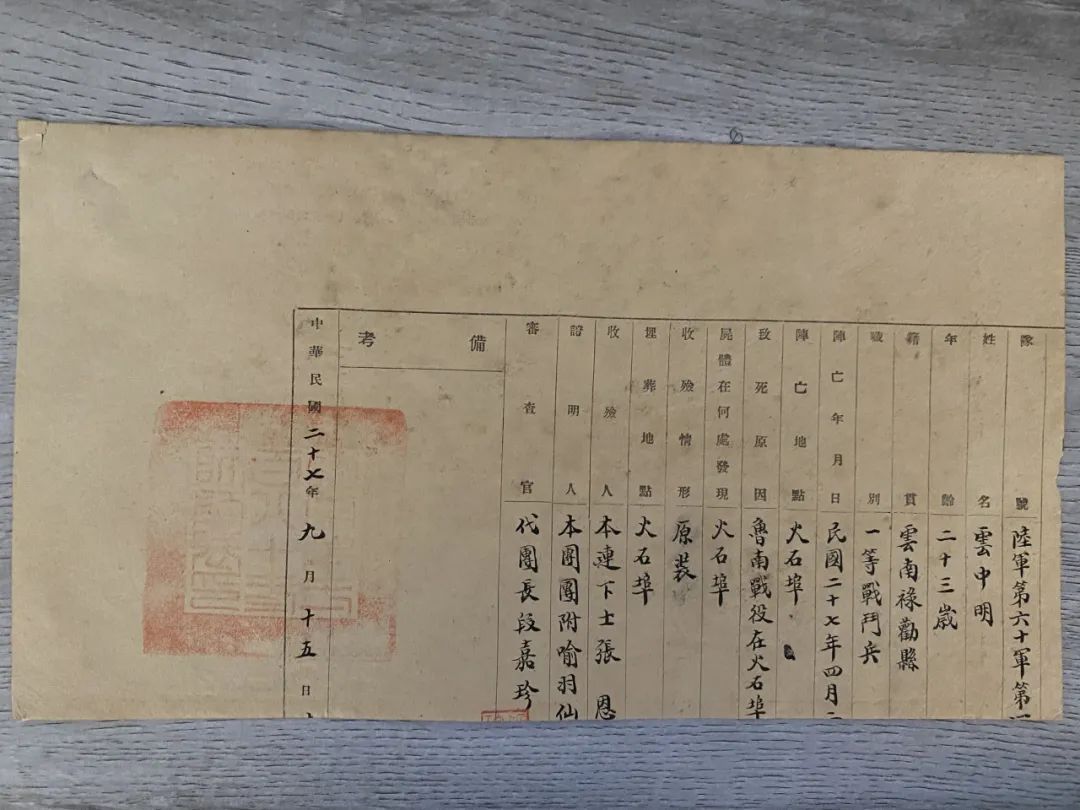 隊號 陸軍第六十軍第一
姓名 雲中明
年齡 二十三歲
籍貫 雲南祿勸縣
職別 一等戰鬥兵
陣亡年月日 民國二十七年四月二
陣亡地點 火石埠
致死原因 魯南戰役在火石埠
屍體在何處發現 火石埠
收殮情形 原裝
埋葬地點 火石埠
收殮人 本連下士張恩
證明人 本團團附喻羽仙
審查官 代團長段嘉珍
備考
中華民國二十七年九月十五日